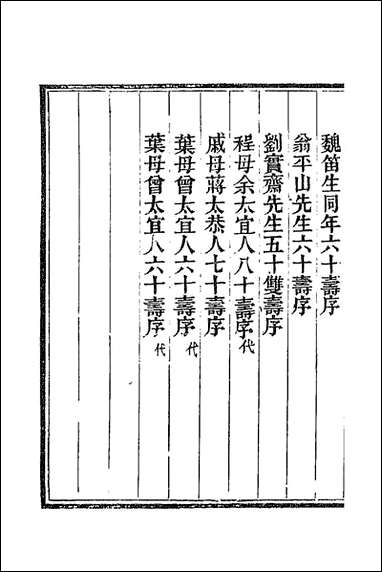 魏笛生同年六十壽序
翁平山先生六十壽序
劉實齋先生五十雙壽序
程母余太宜人八十壽序代
戚母蔣太恭人七十壽序
葉母曾太宜人六十壽序代
葉母曾太宜人六十壽序代